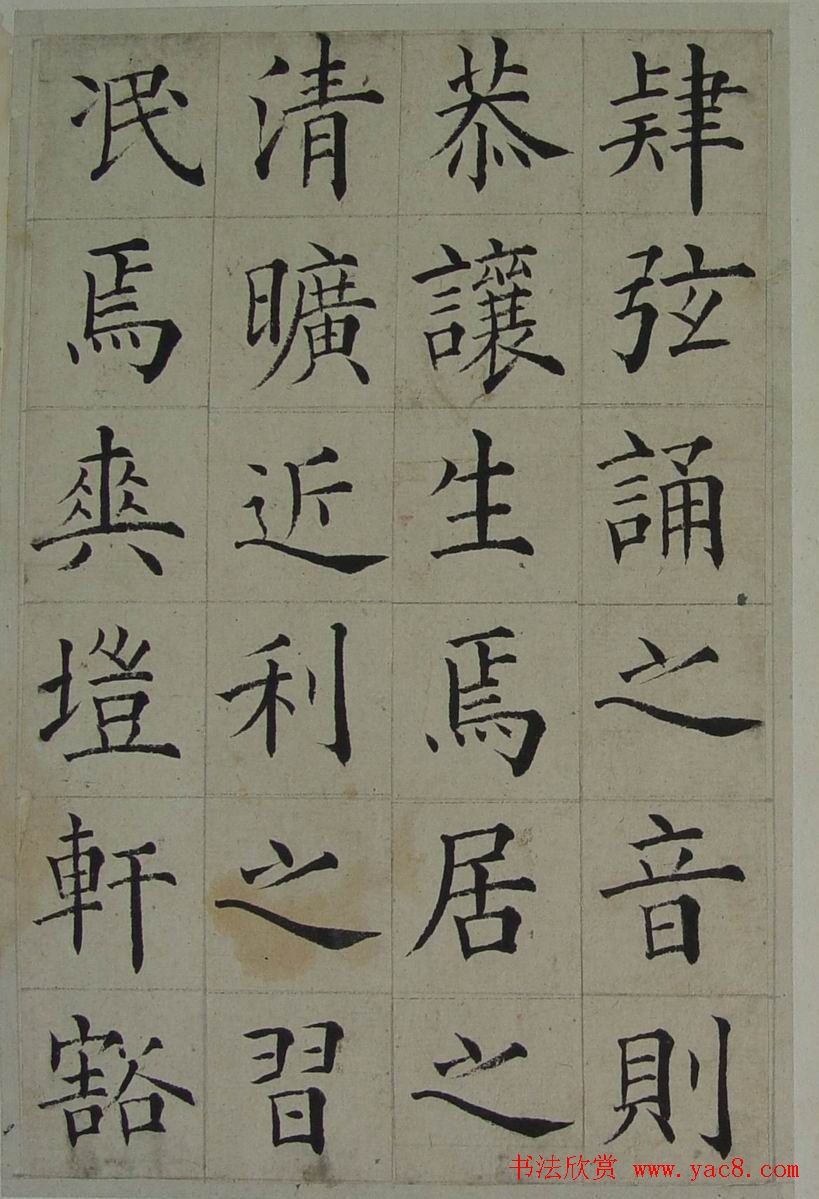 肄弦誦之音則
恭讓生焉居之
清曠近利之習
冺焉爽塏軒豁
书法欣赏 www.yac8.com